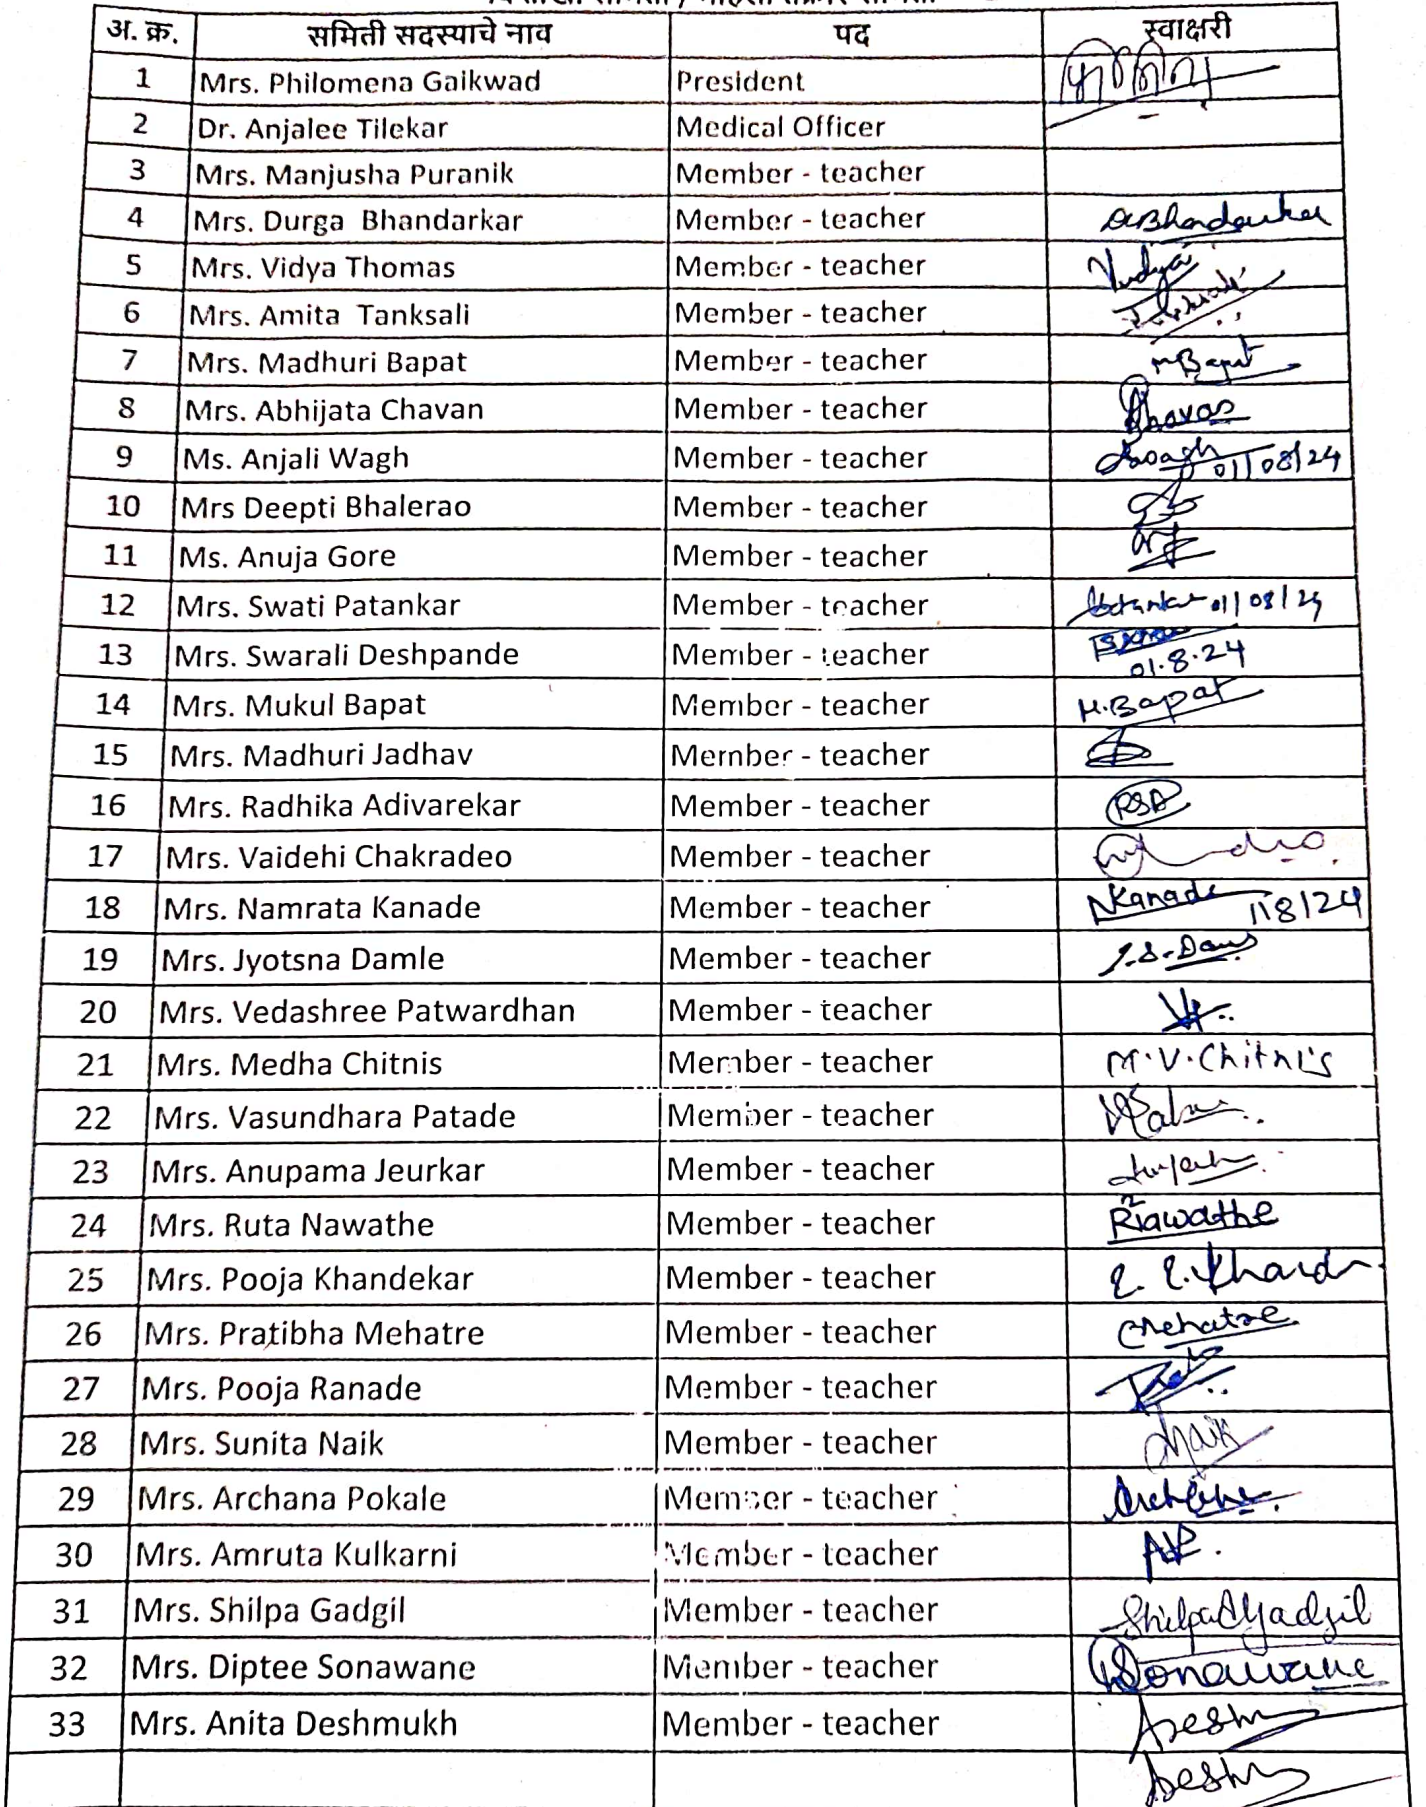 अ. क्र. समिती सदस्याचे नाव पद स्वाक्षरी
1 Mrs. Philomena Gaikwad President
2 Dr. Anjalee Tilekar Medical Officer
3 Mrs. Manjusha Puranik Member - teacher
4 Mrs. Durga Bhandarkar Member - teacher DBhandarkar
5 Mrs. Vidya Thomas Member - teacher Vidya
6 Mrs. Amita Tanksali Member - teacher
7 Mrs. Madhuri Bapat Member - teacher MBapat
8 Mrs. Abhijata Chavan Member - teacher
9 Ms. Anjali Wagh Member - teacher 01/08/24
10 Mrs Deepti Bhalerao Member - teacher
11 Ms. Anuja Gore Member - teacher
12 Mrs. Swati Patankar Member - teacher 01/08/24
13 Mrs. Swarali Deshpande Member - teacher 01.8.24
14 Mrs. Mukul Bapat Member - teacher M.Bapat
15 Mrs. Madhuri Jadhav Member - teacher
16 Mrs. Radhika Adivarekar Member - teacher RSA
17 Mrs. Vaidehi Chakradeo Member - teacher
18 Mrs. Namrata Kanade Member - teacher NKanade 1/8/24
19 Mrs. Jyotsna Damle Member - teacher
20 Mrs. Vedashree Patwardhan Member - teacher
21 Mrs. Medha Chitnis Member - teacher M.V.Chitnis
22 Mrs. Vasundhara Patade Member - teacher
23 Mrs. Anupama Jeurkar Member - teacher
24 Mrs. Ruta Nawathe Member - teacher
25 Mrs. Pooja Khandekar Member - teacher
26 Mrs. Pratibha Mehatre Member - teacher Mehatre
27 Mrs. Pooja Ranade Member - teacher
28 Mrs. Sunita Naik Member - teacher
29 Mrs. Archana Pokale Member - teacher
30 Mrs. Amruta Kulkarni Member - teacher
31 Mrs. Shilpa Gadgil Member - teacher Shilpa Gadgil
32 Mrs. Diptee Sonawane Member - teacher DSonawane
33 Mrs. Anita Deshmukh Member - teacher